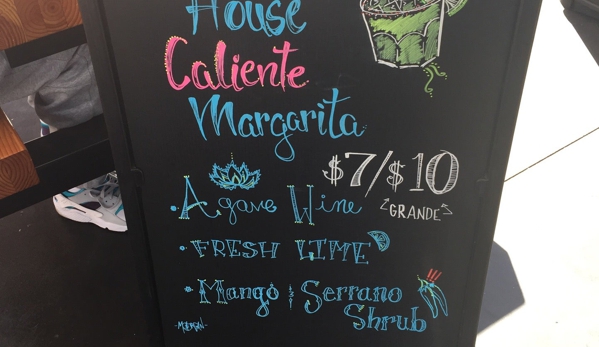 House
Caliente
Margarita
$7/$10
GRANDE
• Agave Wine
• FRESH LIME
• Mango & Serrano
Shrub